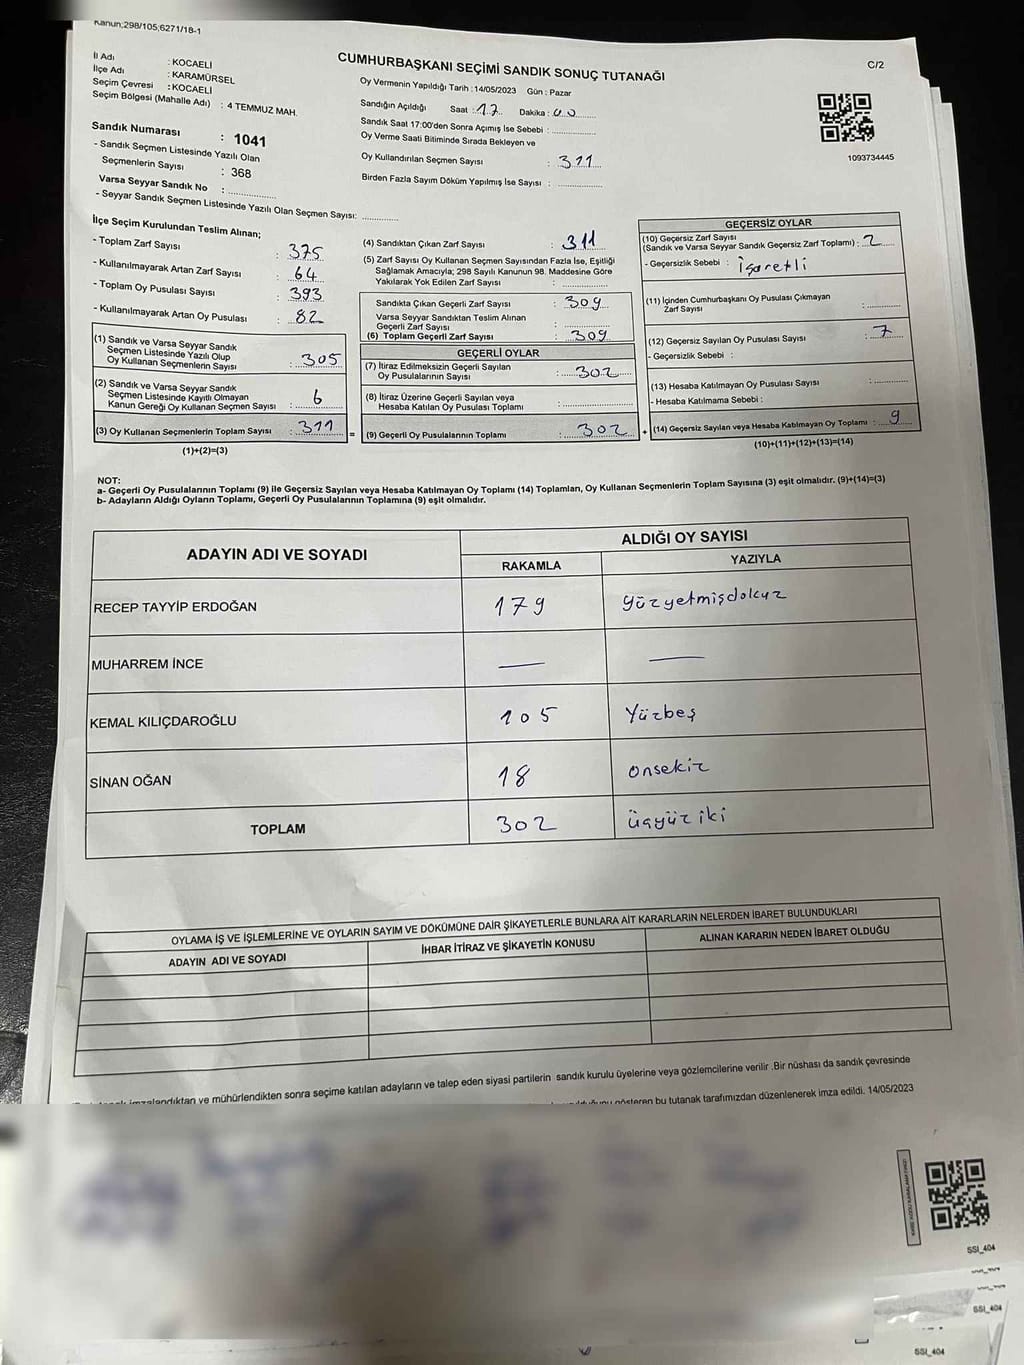 Kanun;298/105;6271/18-1
C/2
CUMHURBAŞKANI SEÇİMİ SANDIK SONUÇ TUTANAĞI
İl Adı : KOCAELİ
İlçe Adı : KARAMÜRSEL
Seçim Çevresi : KOCAELİ
Seçim Bölgesi (Mahalle Adı) : 4 TEMMUZ MAH.
Sandık Numarası : 1041
- Sandık Seçmen Listesinde Yazılı Olan
Seçmenlerin Sayısı : 368
Varsa Seyyar Sandık No :
- Seyyar Sandık Seçmen Listesinde Yazılı Olan Seçmen Sayısı:
Oy Vermenin Yapıldığı Tarih : 14/05/2023 Gün : Pazar
Sandığın Açıldığı Saat : 17 Dakika : 40
Sandık Saat 17:00'den Sonra Açımış İse Sebebi :
Oy Verme Saati Bitiminde Sırada Bekleyen ve
Oy Kullandırılan Seçmen Sayısı : 311
Birden Fazla Sayım Döküm Yapılmış İse Sayısı :
1093734445
İlçe Seçim Kurulundan Teslim Alınan;
- Toplam Zarf Sayısı : 375
- Kullanılmayarak Artan Zarf Sayısı : 64
- Toplam Oy Pusulası Sayısı : 393
- Kullanılmayarak Artan Oy Pusulası : 82
(1) Sandık ve Varsa Seyyar Sandık
Seçmen Listesinde Yazılı Olup
Oy Kullanan Seçmenlerin Sayısı : 305
(2) Sandık ve Varsa Seyyar Sandık
Seçmen Listesinde Kayıtlı Olmayan
Kanun Gereği Oy Kullanan Seçmen Sayısı : 6
(3) Oy Kullanan Seçmenlerin Toplam Sayısı : 311 =
(1)+(2)=(3)
(4) Sandıktan Çıkan Zarf Sayısı : 311
(5) Zarf Sayısı Oy Kullanan Seçmen Sayısından Fazla İse, Eşitliği
Sağlamak Amacıyla; 298 Sayılı Kanunun 98. Maddesine Göre
Yakılarak Yok Edilen Zarf Sayısı :
Sandıkta Çıkan Geçerli Zarf Sayısı : 309
Varsa Seyyar Sandıktan Teslim Alınan
Geçerli Zarf Sayısı :
(6) Toplam Geçerli Zarf Sayısı : 309
GEÇERLİ OYLAR
(7) İtiraz Edilmeksizin Geçerli Sayılan
Oy Pusulalarının Sayısı : 302
(8) İtiraz Üzerine Geçerli Sayılan veya
Hesaba Katılan Oy Pusulası Toplamı :
(9) Geçerli Oy Pusulalarının Toplamı : 302 +
GEÇERSİZ OYLAR
(10) Geçersiz Zarf Sayısı
(Sandık ve Varsa Seyyar Sandık Geçersiz Zarf Toplamı) : 2
- Geçersizlik Sebebi : işaretli
(11) İçinden Cumhurbaşkanı Oy Pusulası Çıkmayan
Zarf Sayısı :
(12) Geçersiz Sayılan Oy Pusulası Sayısı : 7
- Geçersizlik Sebebi :
(13) Hesaba Katılmayan Oy Pusulası Sayısı :
- Hesaba Katılmama Sebebi :
(14) Geçersiz Sayılan veya Hesaba Katılmayan Oy Toplamı : 9
(10)+(11)+(12)+(13)=(14)
NOT:
a- Geçerli Oy Pusulalarının Toplamı (9) ile Geçersiz Sayılan veya Hesaba Katılmayan Oy Toplamı (14) Toplamları, Oy Kullanan Seçmenlerin Toplam Sayısına (3) eşit olmalıdır. (9)+(14)=(3)
b- Adayların Aldığı Oyların Toplamı, Geçerli Oy Pusulalarının Toplamına (9) eşit olmalıdır.
ADAYIN ADI VE SOYADI
ALDIĞI OY SAYISI
RAKAMLA YAZIYLA
RECEP TAYYİP ERDOĞAN 179 yüzyetmişdokuz
MUHARREM İNCE — —
KEMAL KILIÇDAROĞLU 105 Yüzbeş
SİNAN OĞAN 18 onsekiz
TOPLAM 302 üçyüz iki
OYLAMA İŞ VE İŞLEMLERİNE VE OYLARIN SAYIM VE DÖKÜMÜNE DAİR ŞİKAYETLERLE BUNLARA AİT KARARLARIN NELERDEN İBARET BULUNDUKLARI
ADAYIN ADI VE SOYADI İHBAR İTİRAZ VE ŞİKAYETİN KONUSU ALINAN KARARIN NEDEN İBARET OLDUĞU
ve mühürlendikten sonra seçime katılan adayların ve talep eden siyasi partilerin sandık kurulu üyelerine veya gözlemcilerine verilir .Bir nüshası da sandık çevresinde
gösteren bu tutanak tarafımızdan düzenlenerek imza edildi. 14/05/2023
SSI_404
SSI_404
SSI_404